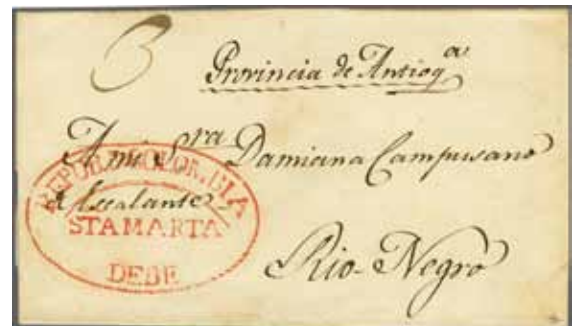 3
Provincia de Antioqa
A mi Sra Damiana Campusano
de Escalante
Rio-Negro
REPUB. COLOMBIA
STAMARTA
DEBE